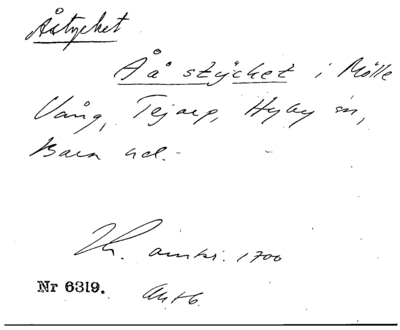 Åstycket
Aå stycket i Mölle
Vång, Tejarp, Hyby sn,
Bara hd.
1700
Nr 6319.